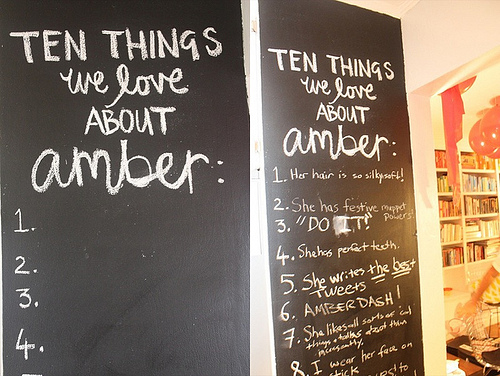 TEN THINGS
we love
ABOUT
amber:
1.
2.
3.
4.
TEN THINGS
we love
ABOUT
amber:
1. Her hair is so silky soft!
2. She has festive muppet
powers!
3. "DO IT!"
4. She has perfect teeth.
5. She writes the best
Tweets
6. AMBERDASH!
7. She likes all sorts of cool
things + talks about them
incessantly.
8. I wear her face on
stick